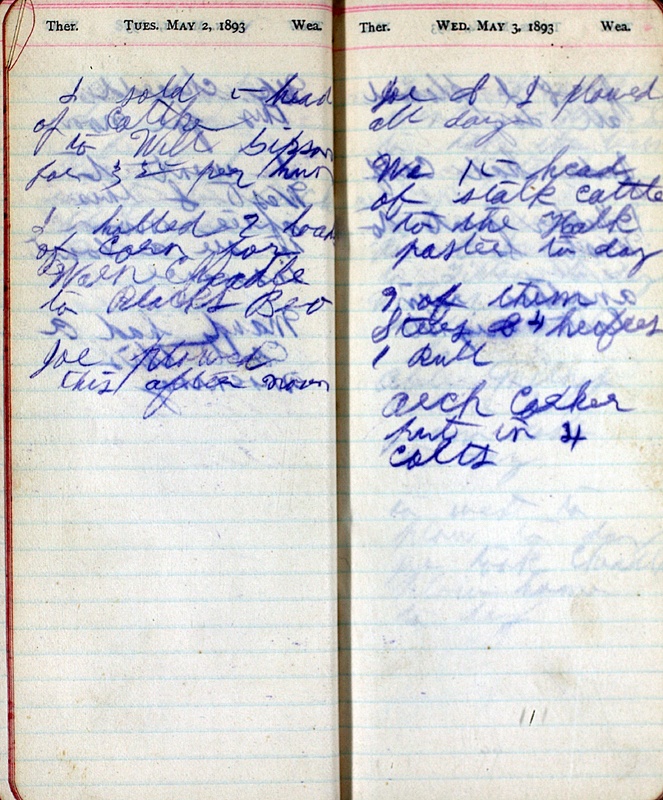 Ther. TUES. MAY 2, 1893 Wea.
I sold 5 head
of Cattle
to Will Gipson
for 3 per hun
I hilled 2 hoad
of Corn for
to Blacks Bro
Joe plowed
this after noon
Ther. WED. MAY 3, 1893 Wea.
Joe & I plowed
all day
We 15 head
of stalk cattle
to the
paster to day
9 of them
Steers & 4 heifers
1 Bull
Arch
put in 4
colts